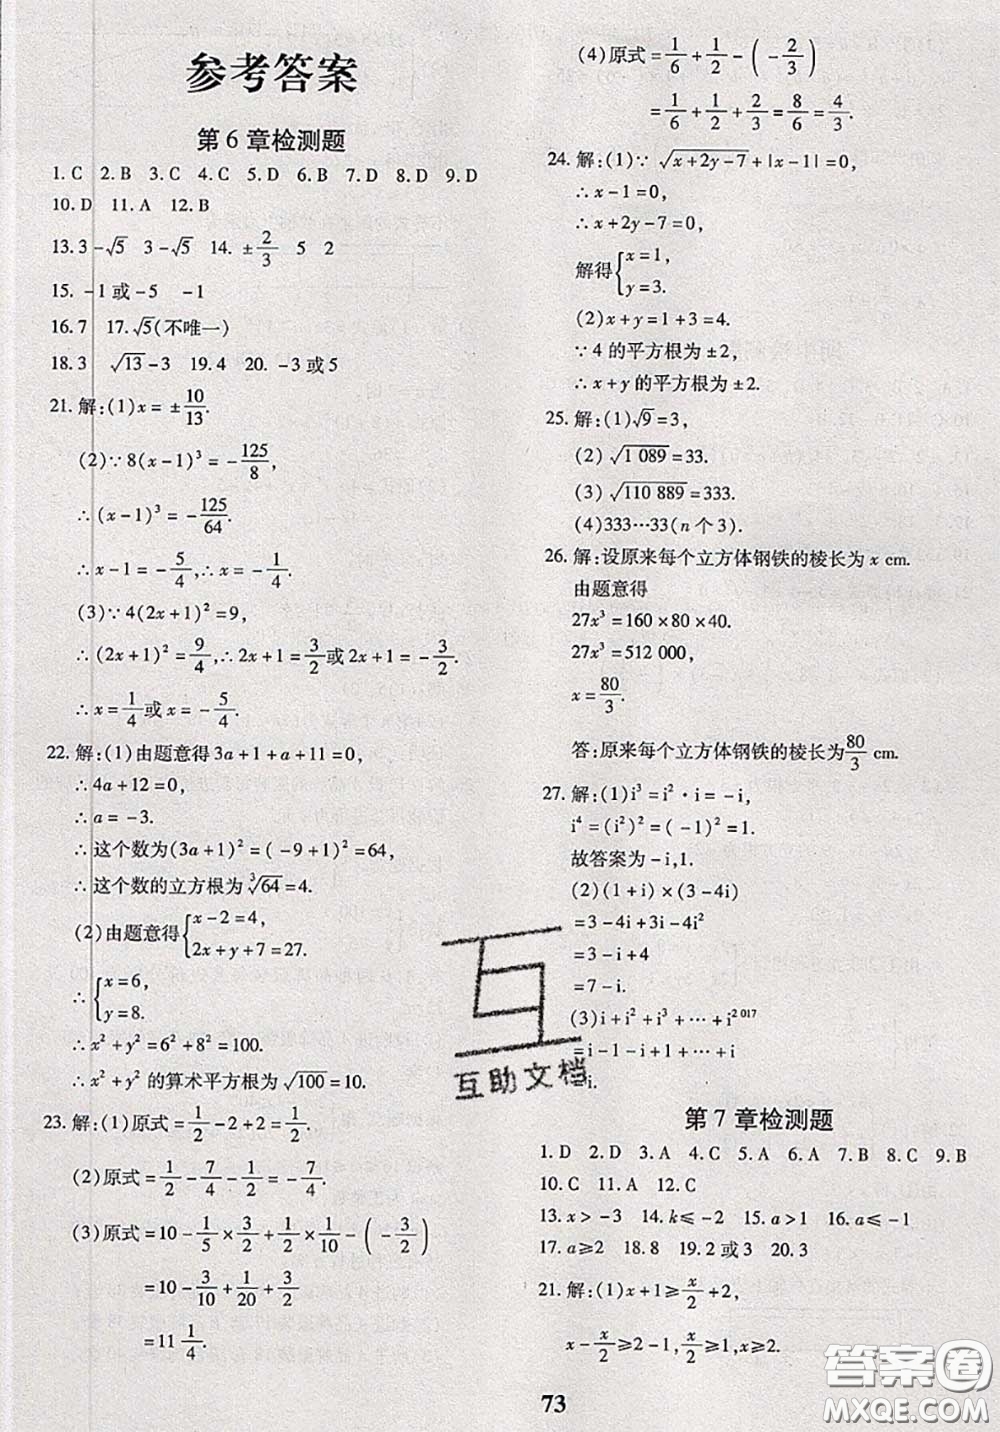 参考答案
第 6 章检测题
1. C  2. B  3. C  4. C  5. D  6. B  7. D  8. D  9. D
10. D  11. A  12. B
13. 3-√5  3-√5  14. ±2/3  5  2
15. -1或-5  -1
16. 7  17. √5(不唯一)
18. 3  √13-3  19. 4  20. -3或5
21. 解:(1)x=±10/13.
(2)∵8(x-1)³=-125/8,
∴(x-1)³=-125/64.
∴x-1=-5/4,∴x=-1/4.
(3)∵4(2x+1)²=9,
∴(2x+1)²=9/4,∴2x+1=3/2或2x+1=-3/2.
∴x=1/4或x=-5/4.
22. 解:(1)由题意得3a+1+a+11=0,
∴4a+12=0,
∴a=-3.
∴这个数为(3a+1)²=(-9+1)²=64,
∴这个数的立方根为³√64=4.
(2)由题意得{x-2=4,
2x+y+7=27.
∴{x=6,
y=8.
∴x²+y²=6²+8²=100.
∴x²+y²的算术平方根为√100=10.
23. 解:(1)原式=1/2-2+2=1/2.
(2)原式=1/2-7/4-1/2=-7/4.
(3)原式=10-1/5×3/2+1/2×1/10-(-3/2)
=10-3/10+1/20+3/2
=11 1/4.
(4)原式=1/6+1/2-(-2/3)
=1/6+1/2+2/3=8/6=4/3.
24. 解:(1)∵√(x+2y-7)+|x-1|=0,
∴x-1=0,
∴x+2y-7=0,
解得{x=1,
y=3.
(2)x+y=1+3=4.
∵4的平方根为±2,
∴x+y的平方根为±2.
25. 解:(1)√9=3,
(2)√1 089=33.
(3)√110 889=333.
(4)333…33(n个3).
26. 解:设原来每个立方体钢铁的棱长为x cm.
由题意得
27x³=160×80×40.
27x³=512 000,
x=80/3.
答:原来每个立方体钢铁的棱长为80/3 cm.
27. 解:(1)i³=i²·i=-i,
i⁴=(i²)²=(-1)²=1.
故答案为-i,1.
(2)(1+i)×(3-4i)
=3-4i+3i-4i²
=3-i+4
=7-i.
(3)i+i²+i³+…+i²⁰¹⁷
=i-1-i+1+…+i
=i.
第 7 章检测题
1. D  2. D  3. A  4. C  5. A  6. A  7. B  8. C  9. B
10. C  11. A  12. C
13. x>-3  14. k≤-2  15. a>1  16. a≤-1
17. a≥2  18. 8  19. 2或3  20. 3
21. 解:(1)x+1≥x/2+2,
x-x/2≥2-1,x/2≥1,x≥2.
73
互
互助文档
答案卷
MXQE.COM